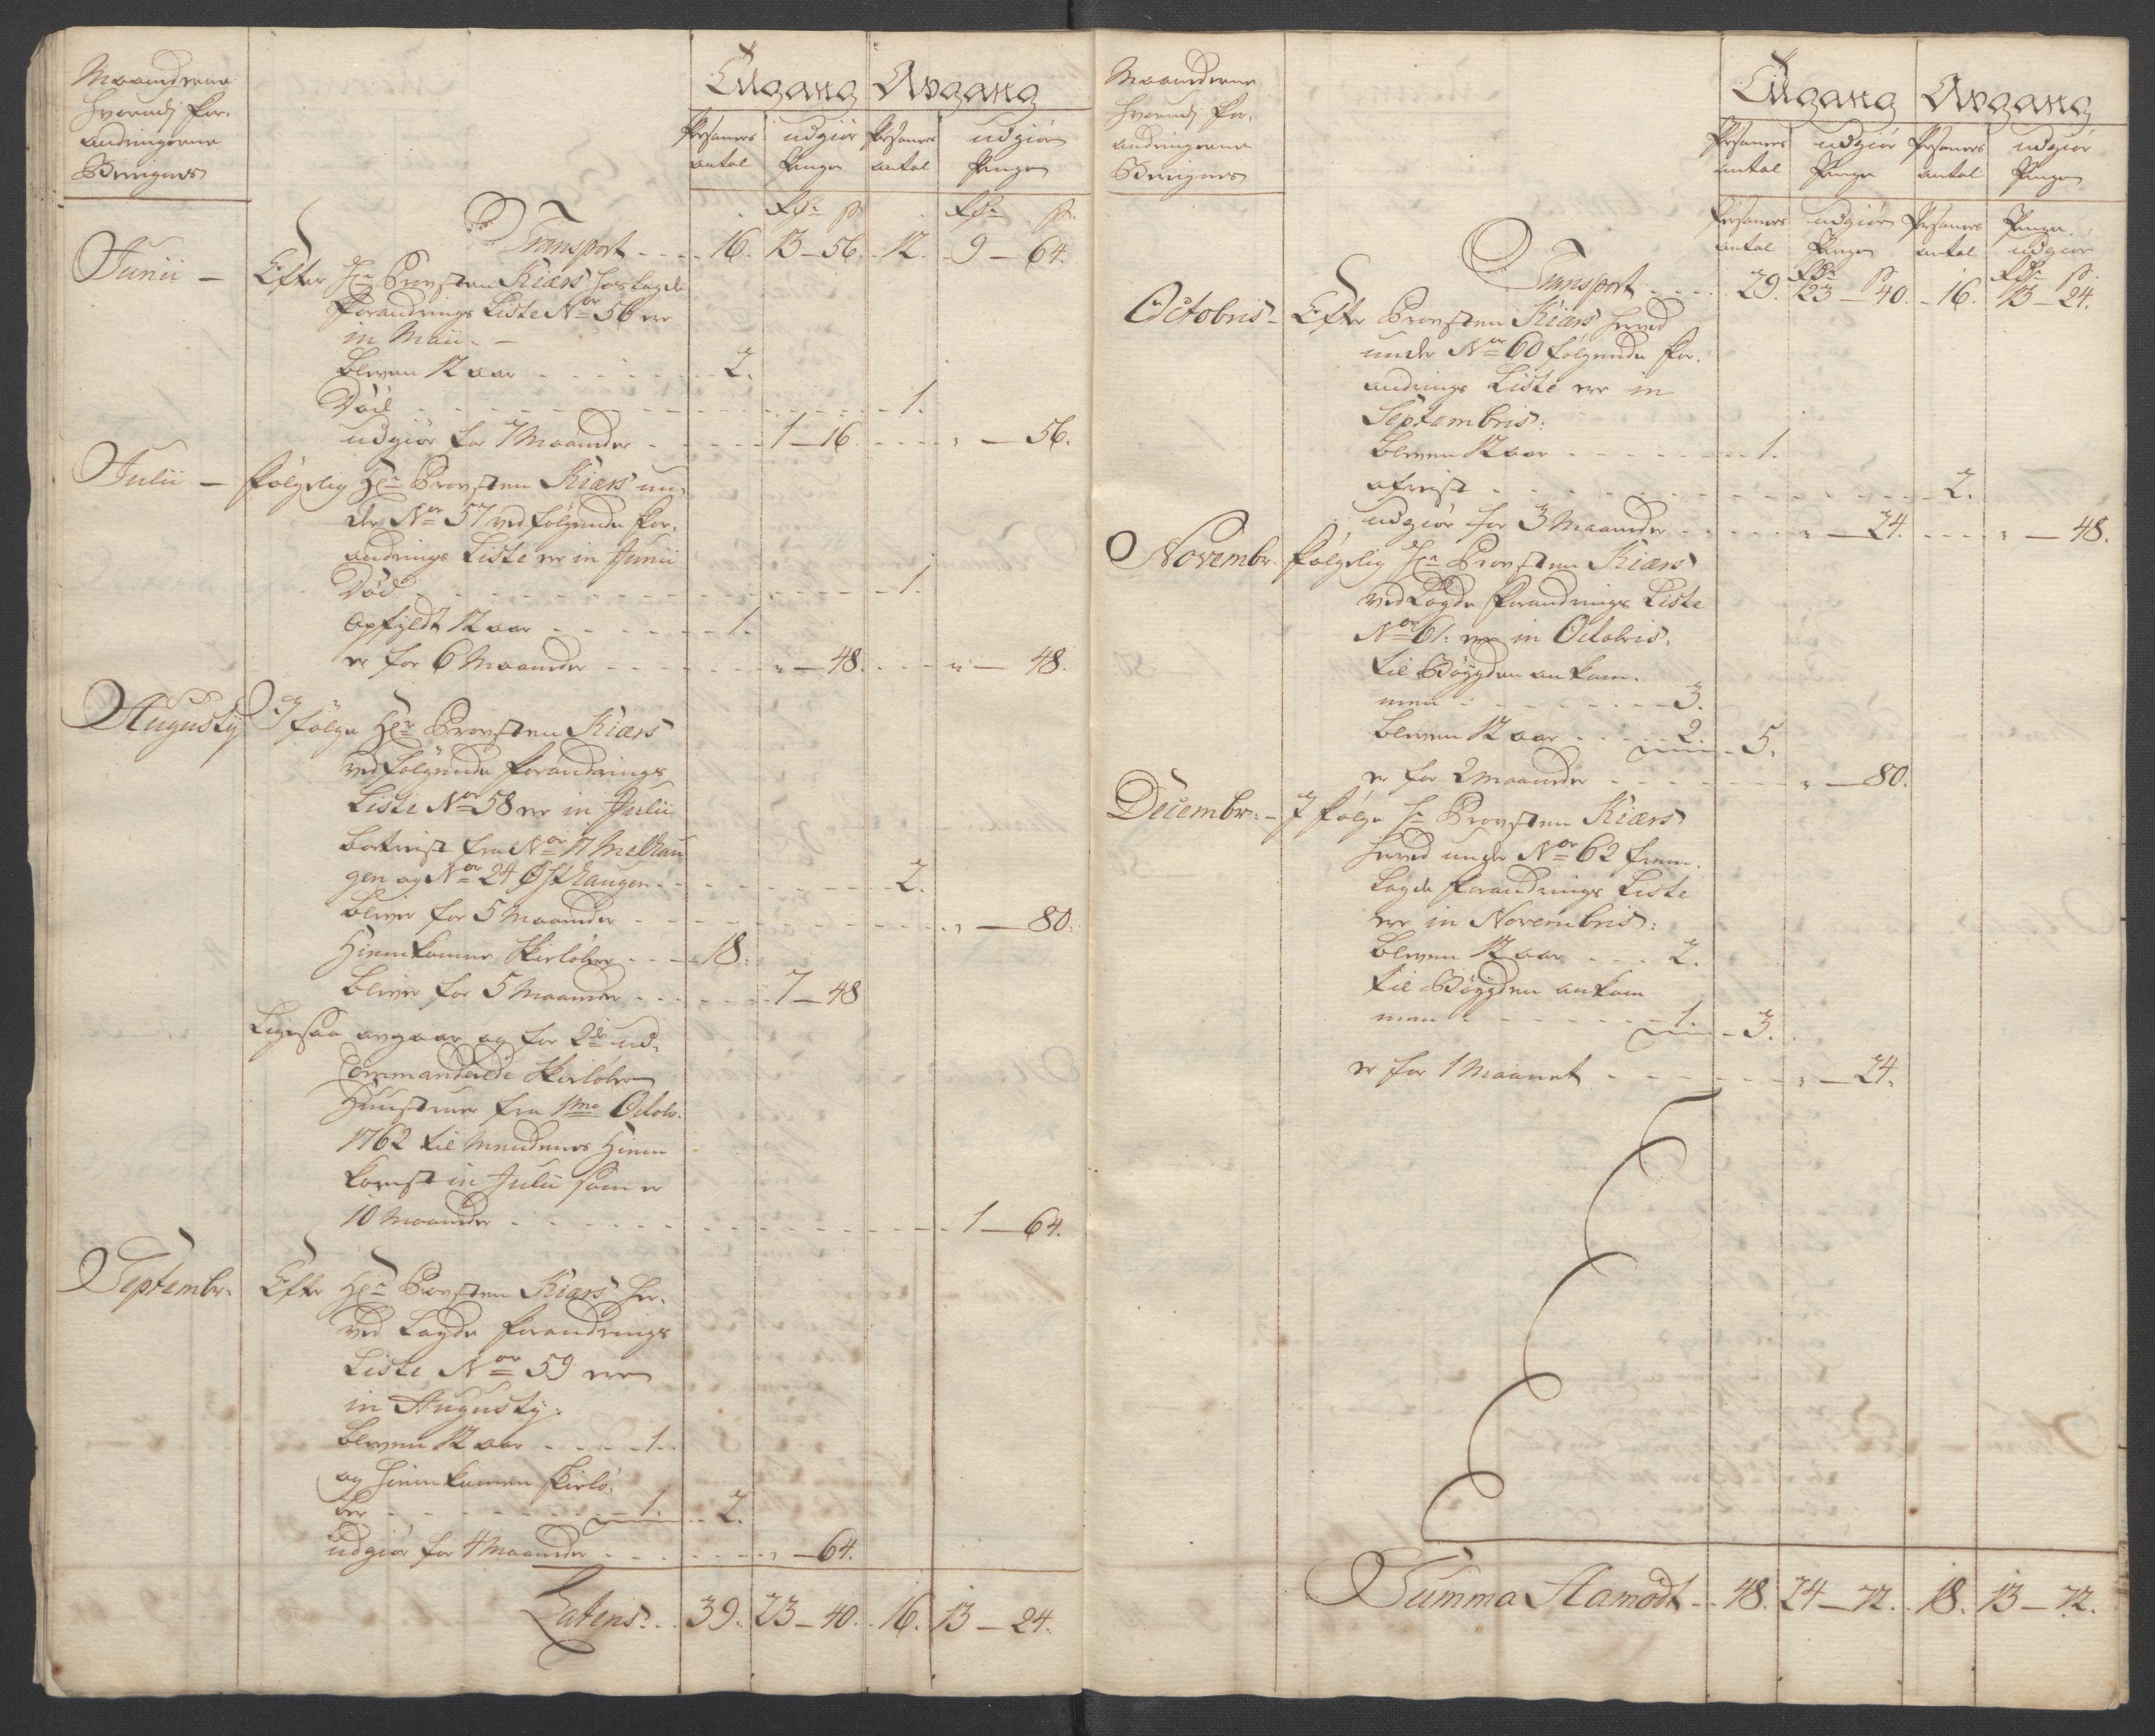 Maanederne
hvorudj For-
andringerne
Berignes
Tilgang Avgang
Persohners antal udgiør Penge Persohners antal udgiør Penge
Rdr ß Rdr ß
Transport - - - 16. 13 - 56. 12. 9 - 64.
Junii - Efter Hr Provsten Kiærs hoslagde
Forandrings Liste Nor 56 ere
in Maii -
bleven 12 aar - - - 2.
Død - - - 1.
udgiør for 7 Maaneder - - - 1 - 16. - - - " - 56.
Julii - følgelig Hr Provsten Kiærs un-
der Nor 57 vedfølgende For-
andrings Liste er in Junii
Død - - - 1.
Opfyldt 12 aar - - - 1.
er for 6 Maaneder - - - " - 48. - - - " - 48.
Augusty I følge Hr Provsten Kiærs
vedfølgende Forandrings
Liste Nor 58 er in Julii
bortreist fra Nor 17 Melhau
gen og Nor 24 Østhaugen - - - 2.
bliver for 5 Maaneder - - - " - 80.
Hiemkomne Skieløber - - - 18.
bliver for 5 Maaneder - - - 7 - 48
Ligesaa avgaar og for 2de ud-
Commanderede Skieløbere
Hustruer fra 1mo Octobr.
1762 til Mændenes Hiem
komst in Julii som er
10 Maaneder - - - 1 - 64.
Septembr. Efter Hr Provsten Kiærs her-
ved Lagde Forandrings
Liste Nor 59 ere
in Augusty.
bleven 12 aar - - - 1.
og Hiemkommen Skielø-
ber - - - 1. - 2.
udgiør for 4 Maaneder - - - " - 64.
Latens - 39. 23 - 40. 16. 13 - 24.
Maanederne
hvorudj For-
andringerne
Berignes
Tilgang Avgang
Persohners antal udgiør Penge Persohners antal udgiør Penge
Persohners antal udgiør Penge Persohners antal Penge udgiør
Rdr ß Rdr ß
Transport - - - 29. 23 - 40. - 16. 13 - 24.
Octobris - Efter Provsten Kiærs herved
under Nor 60 følgende For-
andrings Liste ere in
Septembris:
bleven 12 aar - - - 1.
afreist - - - 2.
udgiør for 3 Maaneder - - - " - 24. - - - " - 48.
Novembr. følgelig Hr Provsten Kiærs
vedLagde Forandrings Liste
Nor 61. ere in Octobris.
til Bøygden ankom-
men - - - 3.
bleven 12 aar - - - 2. - 5.
er for 2 Maaneder - - - " - 80.
Decembr. - I følge Hr Provsten Kiærs
herved under Nor 62 frem-
lagde Forandrings Liste
ere in Novembris:
bleven 12 aar - - - 2.
til Bøygden ankom
men - - - 1. - 3.
er for 1 Maanet - - - " - 24.
Summa Aamodt - 48. 24 - 72. 18. 13 - 72.